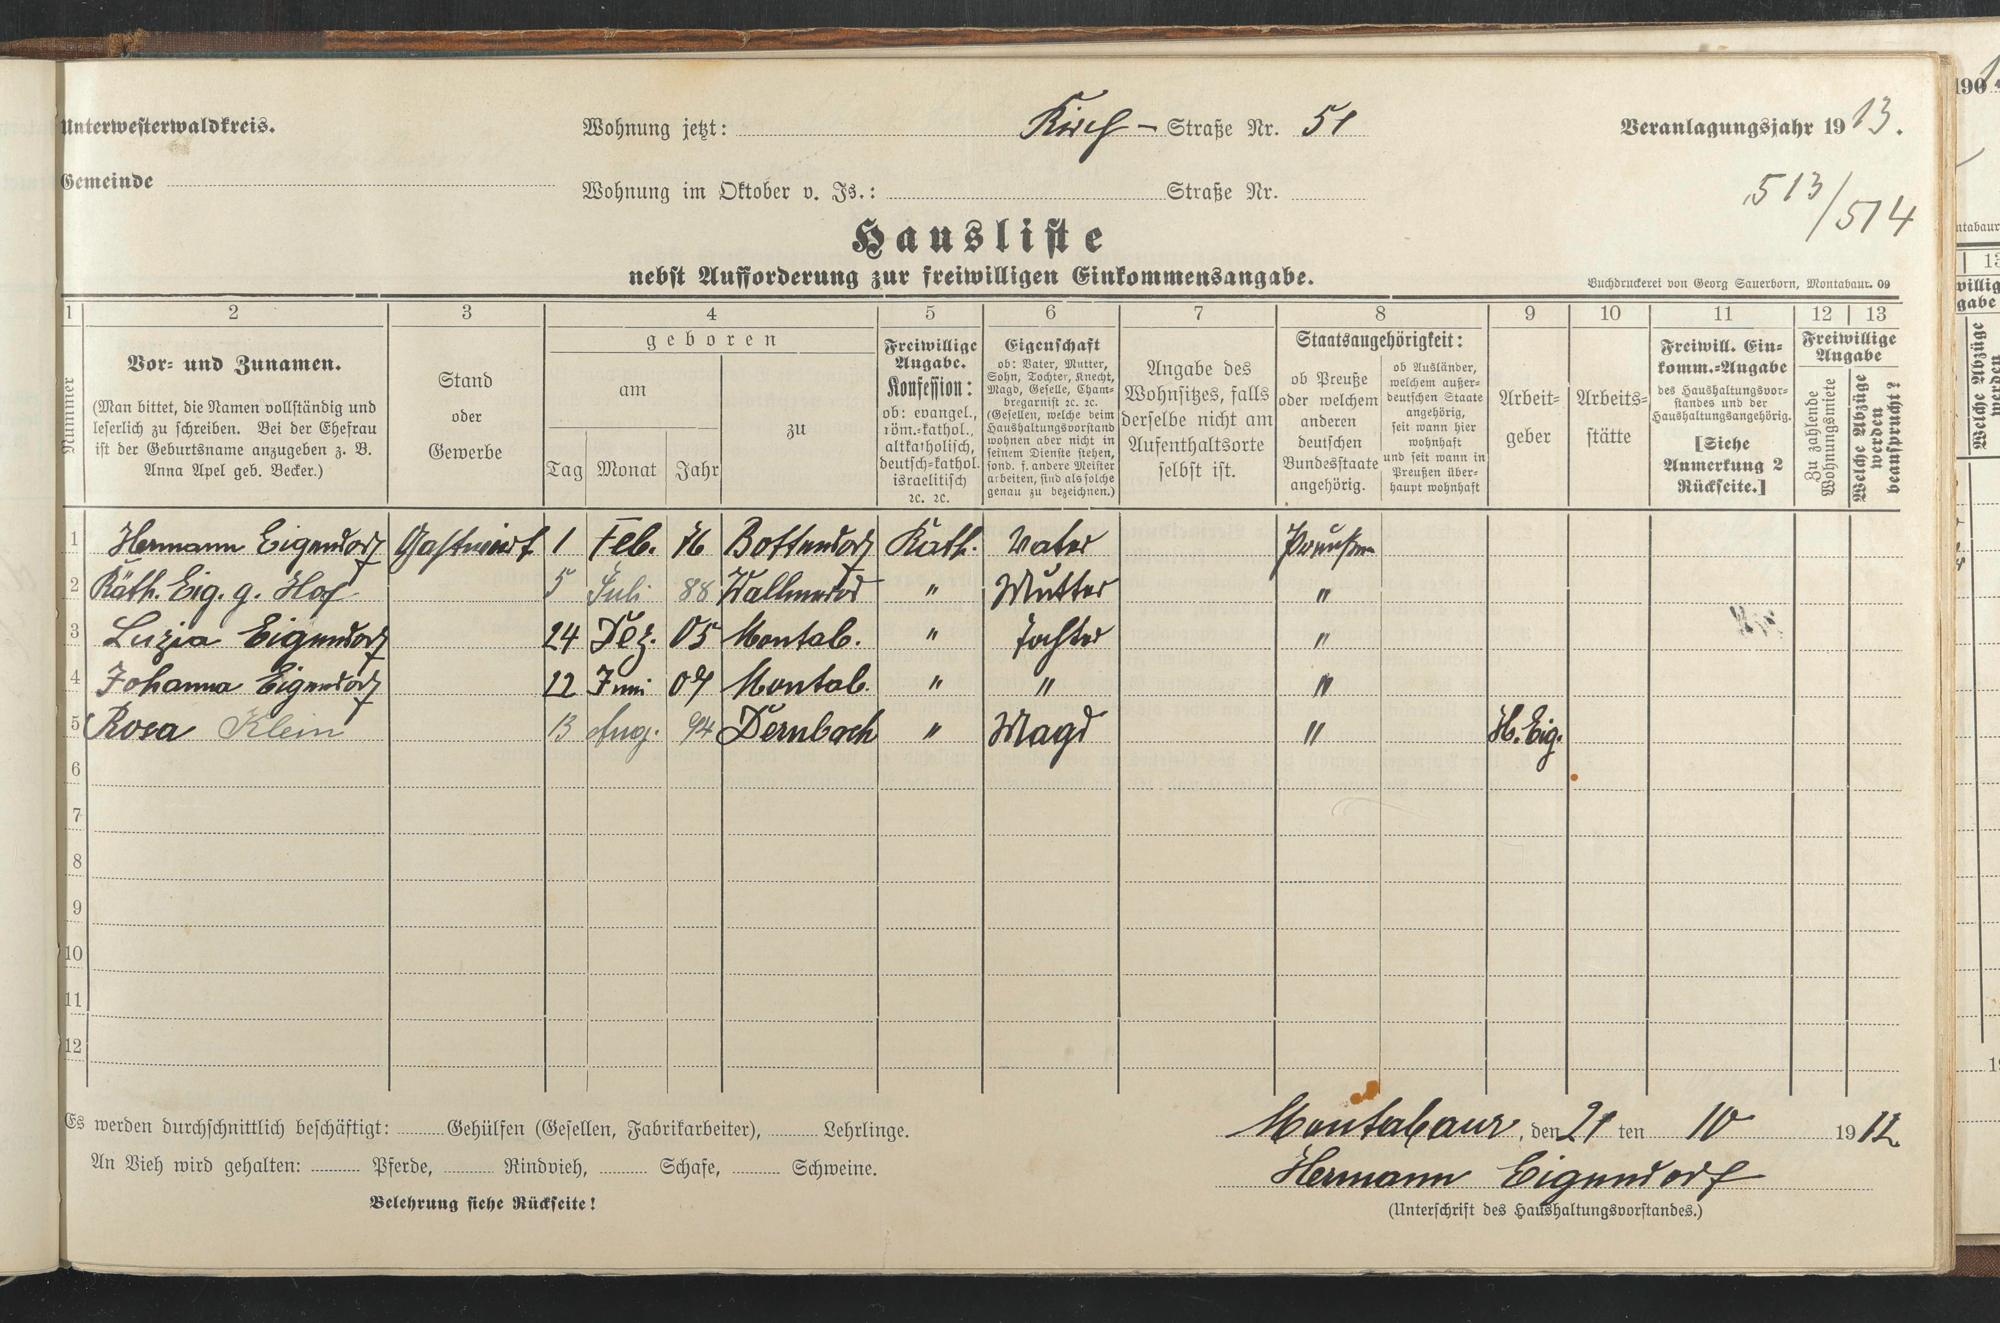 Unterwesterwaldkreis.
Wohnung jetzt: Kirch- Straße Nr. 51
Veranlagungsjahr 1913.
Gemeinde
Wohnung im Oktober v. Js.: Straße Nr.
513/514
Hausliste
nebst Aufforderung zur freiwilligen Einkommensangabe.
Buchdruckerei von Georg Sauerborn, Montabaur. 09
1 2 3 4 5 6 7 8 9 10 11 12 13
Nummer
Vor- und Zunamen.
(Man bittet, die Namen vollständig und
leserlich zu schreiben. Bei der Ehefrau
ist der Geburtsname anzugeben z. B.
Anna Apel geb. Becker.)
Stand
oder
Gewerbe
geboren
am
Tag Monat Jahr
zu
Freiwillige
Angabe.
Konfession:
ob: evangel.,
röm.-kathol.,
altkatholisch,
deutsch-kathol.
israelitisch
ꝛc. ꝛc.
Eigenschaft
ob: Vater, Mutter,
Sohn, Tochter, Knecht,
Magd, Geselle, Cham-
bregarnist ꝛc. ꝛc.
(Gesellen, welche beim
Haushaltungsvorstand
wohnen aber nicht in
seinem Dienste stehen,
sond. f. andere Meister
arbeiten, sind als solche
genau zu bezeichnen.)
Angabe des
Wohnsitzes, falls
derselbe nicht am
Aufenthaltsorte
selbst ist.
Staatsangehörigkeit:
ob Preuße
oder welchem
anderen
deutschen
Bundesstaate
angehörig.
ob Ausländer,
welchem außer-
deutschen Staate
angehörig,
seit wann hier
wohnhaft
und seit wann in
Preußen über-
haupt wohnhaft
Arbeit-
geber
Arbeits-
stätte
Freiwill. Ein-
komm.-Angabe
des Haushaltungsvor-
standes und der
Haushaltungsangehörig.
[Siehe
Anmerkung 2
Rückseite.]
Freiwillige
Angabe
Zu zahlende
Wohnungsmiete
Welche Abzüge
werden
beansprucht?
1 Hermann Eigendorf Gastwirt 1 Feb. 76 Bottendorf Kath. Vater Preußen
2 Käth. Eig. g. Hof 5 Juli 88 Wallmerod " Mutter "
3 Luzia Eigendorf 24 Dez. 05 Montab. " Tochter "
4 Johanna Eigendorf 12 Juni 07 Montab. " " "
5 Rosa Klein 13 Aug. 94 Dernbach " Magd " H. Eig.
6
7
8
9
10
11
12
Es werden durchschnittlich beschäftigt: Gehülfen (Gesellen, Fabrikarbeiter), Lehrlinge.
An Vieh wird gehalten: Pferde, Rindvieh, Schafe, Schweine.
Belehrung siehe Rückseite!
Montabaur, den 21 ten 10 1912
Hermann Eigendorf
(Unterschrift des Haushaltungsvorstandes.)